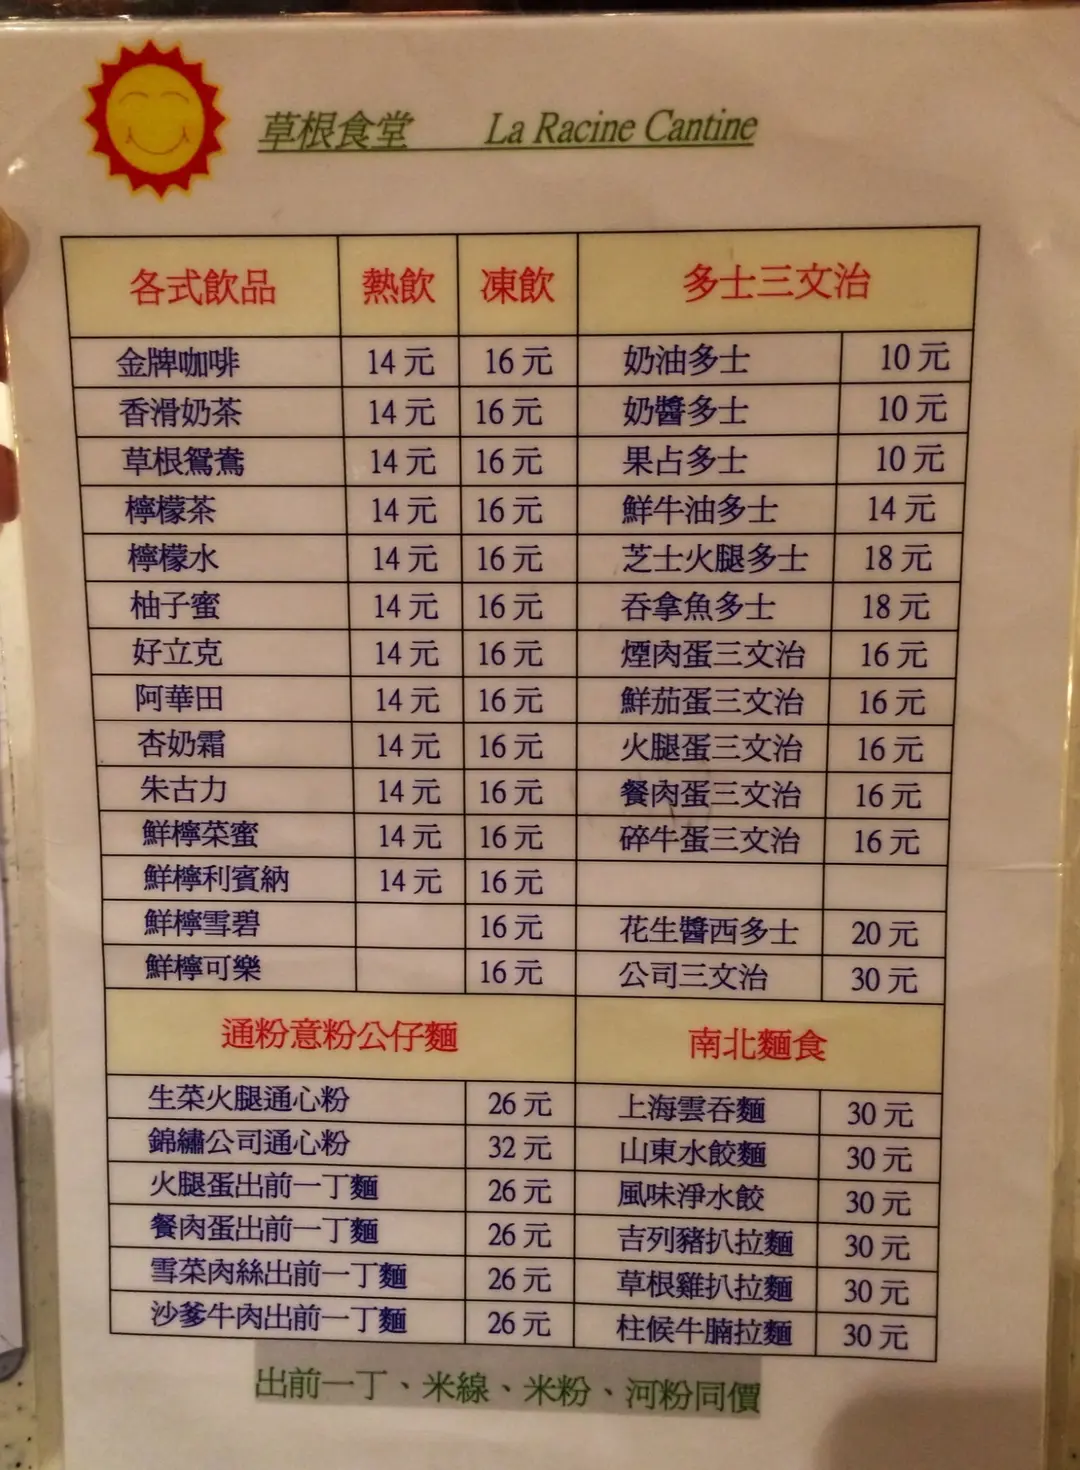 草根食堂 La Racine Cantine
各式飲品 熱飲 凍飲 多士三文治
金牌咖啡 14元 16元 奶油多士 10元
香滑奶茶 14元 16元 奶醬多士 10元
草根鴛鴦 14元 16元 果占多士 10元
檸檬茶 14元 16元 鮮牛油多士 14元
檸檬水 14元 16元 芝士火腿多士 18元
柚子蜜 14元 16元 吞拿魚多士 18元
好立克 14元 16元 煙肉蛋三文治 16元
阿華田 14元 16元 鮮茄蛋三文治 16元
杏奶霜 14元 16元 火腿蛋三文治 16元
朱古力 14元 16元 餐肉蛋三文治 16元
鮮檸菜蜜 14元 16元 碎牛蛋三文治 16元
鮮檸利賓納 14元 16元
鮮檸雪碧 16元 花生醬西多士 20元
鮮檸可樂 16元 公司三文治 30元
通粉意粉公仔麵 南北麵食
生菜火腿通心粉 26元 上海雲吞麵 30元
錦繡公司通心粉 32元 山東水餃麵 30元
火腿蛋出前一丁麵 26元 風味淨水餃 30元
餐肉蛋出前一丁麵 26元 吉列豬扒拉麵 30元
雪菜肉絲出前一丁麵 26元 草根雞扒拉麵 30元
沙爹牛肉出前一丁麵 26元 柱候牛腩拉麵 30元
出前一丁、米線、米粉、河粉同價